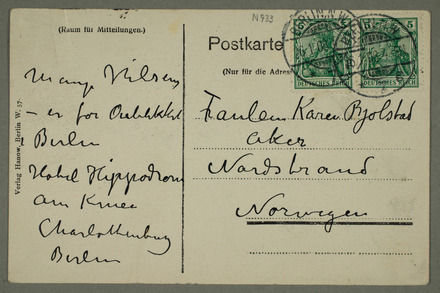 N 933
(Raum für Mitteilungen.)
Postkarte
(Nur für die Adresse
Mange Hilsen
– er for Øieblikket
Berlin
Hotel Hippodrom
am Knie
Charlottenburg
Berlin
Verlag Hanow, Berlin W. 57.
BERLIN
5 5
DEUTSCHES REICH
DEUTSCHES REICH
Frøulein Karen Bjølstad
Aker
Nordstrand
Norwegen